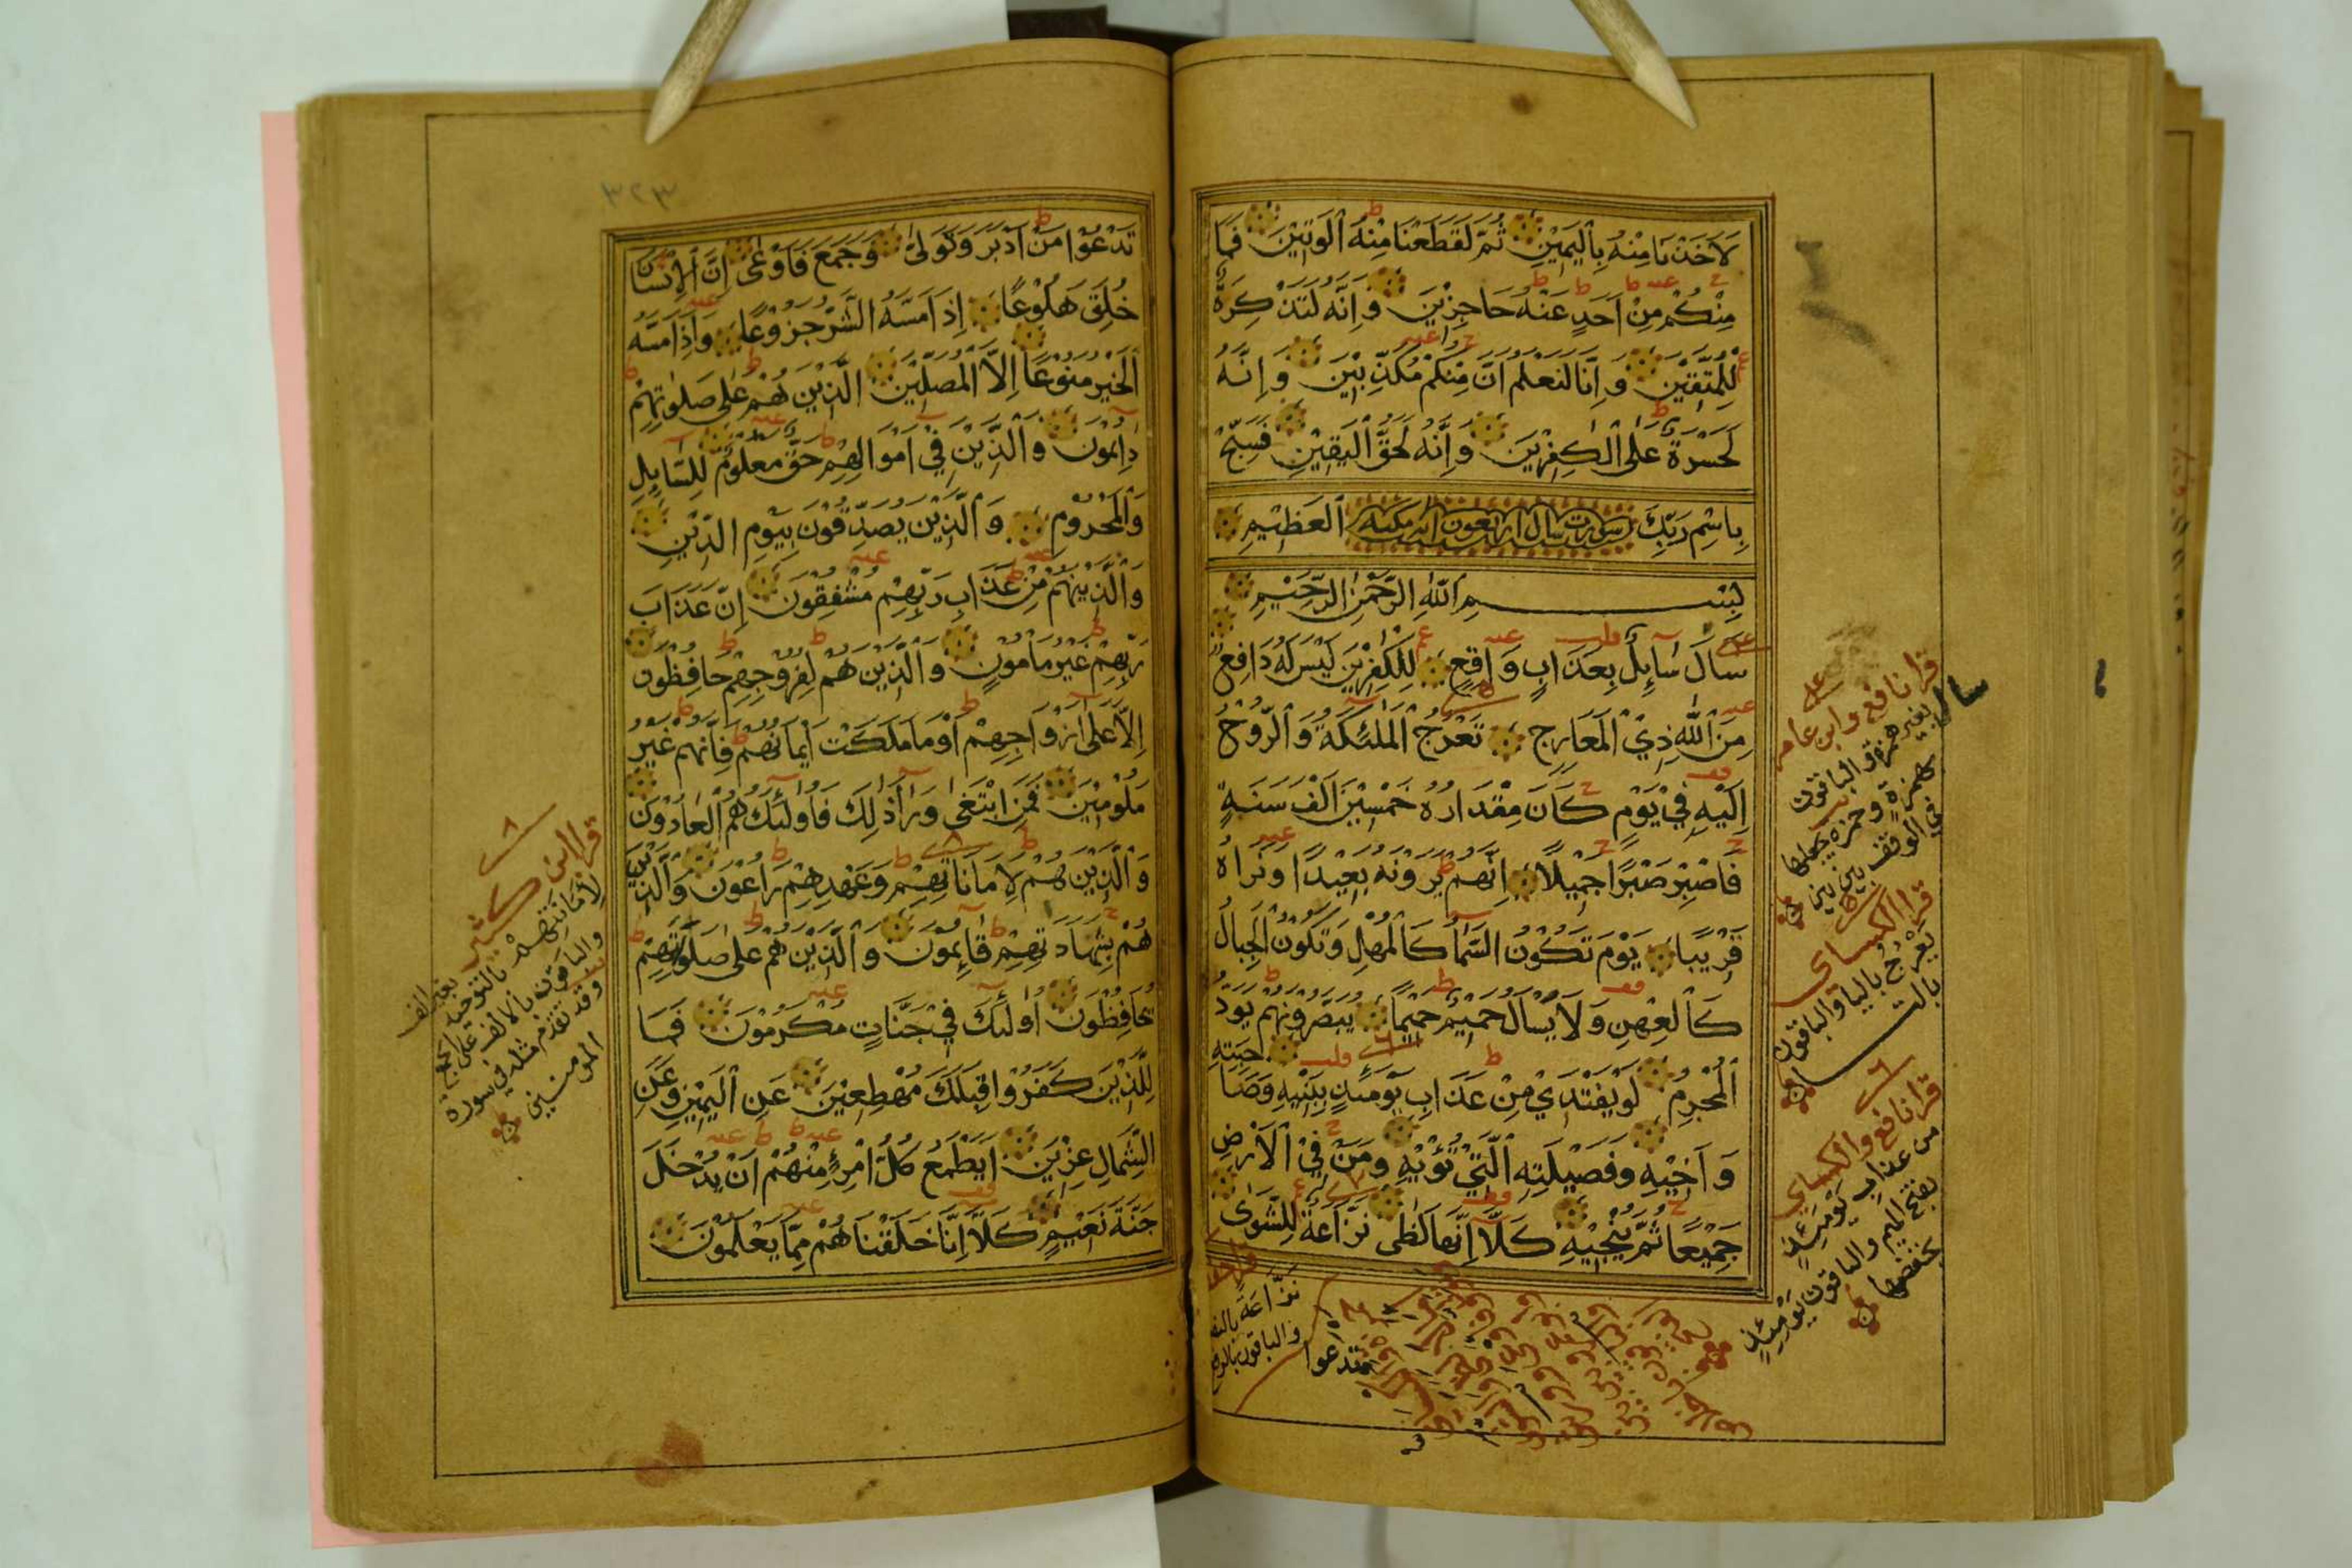 لَاَخَذْنَا مِنْهُ بِالْيَمِيْنِ ثُمَّ لَقَطَعْنَا مِنْهُ الْوَتِيْنَ فَمَا
مِنْكُمْ مِنْ اَحَدٍ عَنْهُ حَاجِزِيْنَ وَاِنَّهُ لَتَذْكِرَةٌ
لِلْمُتَّقِيْنَ وَاِنَّا لَنَعْلَمُ اَنَّ مِنْكُمْ مُكَذِّبِيْنَ وَاِنَّهُ
لَحَسْرَةٌ عَلَى الْكٰفِرِيْنَ وَاِنَّهُ لَحَقُّ الْيَقِيْنِ فَسَبِّحْ
بِاسْمِ رَبِّكَ سورت سال اربعون آيه مكيه الْعَظِيْمِ
بِسْمِ اللّٰهِ الرَّحْمٰنِ الرَّحِيْمِ
سَاَلَ سَآئِلٌ بِعَذَابٍ وَاقِعٍ لِلْكٰفِرِيْنَ لَيْسَ لَهُ دَافِعٌ
مِنَ اللّٰهِ ذِي الْمَعَارِجِ تَعْرُجُ الْمَلٰئِكَةُ وَالرُّوْحُ
اِلَيْهِ فِيْ يَوْمٍ كَانَ مِقْدَارُهُ خَمْسِيْنَ اَلْفَ سَنَةٍ
فَاصْبِرْ صَبْرًا جَمِيْلًا اِنَّهُمْ يَرَوْنَهُ بَعِيْدًا وَنَرَاهُ
قَرِيْبًا يَوْمَ تَكُوْنُ السَّمَآءُ كَالْمُهْلِ وَتَكُوْنُ الْجِبَالُ
كَالْعِهْنِ وَلَا يَسْاَلُ حَمِيْمٌ حَمِيْمًا يُبَصَّرُوْنَهُمْ يَوَدُّ
الْمُجْرِمُ لَوْ يَفْتَدِيْ مِنْ عَذَابِ يَوْمَئِذٍ بِبَنِيْهِ وَصَاحِبَتِهِ
وَاَخِيْهِ وَفَصِيْلَتِهِ الَّتِيْ تُؤْيْهِ وَمَنْ فِي الْاَرْضِ
جَمِيْعًا ثُمَّ يُنْجِيْهِ كَلَّا اِنَّهَا لَظٰى نَزَّاعَةً لِلشَّوٰى
تدعوا
قرا نافع وابن عامر
سال بغير همزة والباقون
بهمزة وحمزه يجعلها
في الوقف بين بين
قرا الكسائي
يعرج باليا والباقون
بالتا
قرا نافع والكسائي
من عذاب يومئذ
بفتح الميم والباقون يومئذ
بخفضها
نزاعة بالنصب
والباقون بالرفع
٣٢٣
تَدْعُوْا مَنْ اَدْبَرَ وَتَوَلّٰى وَجَمَعَ فَاَوْعٰى اِنَّ الْاِنْسَانَ
خُلِقَ هَلُوْعًا اِذَا مَسَّهُ الشَّرُّ جَزُوْعًا وَاِذَا مَسَّهُ
الْخَيْرُ مَنُوْعًا اِلَّا الْمُصَلِّيْنَ الَّذِيْنَ هُمْ عَلٰى صَلٰوتِهِمْ
دَآئِمُوْنَ وَالَّذِيْنَ فِيْ اَمْوَالِهِمْ حَقٌّ مَعْلُوْمٌ لِلسَّآئِلِ
وَالْمَحْرُوْمِ وَالَّذِيْنَ يُصَدِّقُوْنَ بِيَوْمِ الدِّيْنِ
وَالَّذِيْنَ هُمْ مِنْ عَذَابِ رَبِّهِمْ مُشْفِقُوْنَ اِنَّ عَذَابَ
رَبِّهِمْ غَيْرُ مَاْمُوْنٍ وَالَّذِيْنَ هُمْ لِفُرُوْجِهِمْ حَافِظُوْنَ
اِلَّا عَلٰى اَزْوَاجِهِمْ اَوْ مَا مَلَكَتْ اَيْمَانُهُمْ فَاِنَّهُمْ غَيْرُ
مَلُوْمِيْنَ فَمَنِ ابْتَغٰى وَرَآءَ ذٰلِكَ فَاُولٰئِكَ هُمُ الْعَادُوْنَ
وَالَّذِيْنَ هُمْ لِاَمَانَاتِهِمْ وَعَهْدِهِمْ رَاعُوْنَ وَالَّذِيْنَ
هُمْ بِشَهَادَتِهِمْ قَآئِمُوْنَ وَالَّذِيْنَ هُمْ عَلٰى صَلٰوتِهِمْ
يُحَافِظُوْنَ اُولٰئِكَ فِيْ جَنَّاتٍ مُكْرَمُوْنَ فَمَا
لِلَّذِيْنَ كَفَرُوْا قِبَلَكَ مُهْطِعِيْنَ عَنِ الْيَمِيْنِ وَعَنِ
الشِّمَالِ عِزِيْنَ اَيَطْمَعُ كُلُّ امْرِئٍ مِنْهُمْ اَنْ يُدْخَلَ
جَنَّةَ نَعِيْمٍ كَلَّا اِنَّا خَلَقْنَاهُمْ مِمَّا يَعْلَمُوْنَ
قرا ابن كثير
لامانتهم بالتوحيد بغير الف
والباقون بالالف على الجمع
وقد تقدم مثله في سورة
المومنين